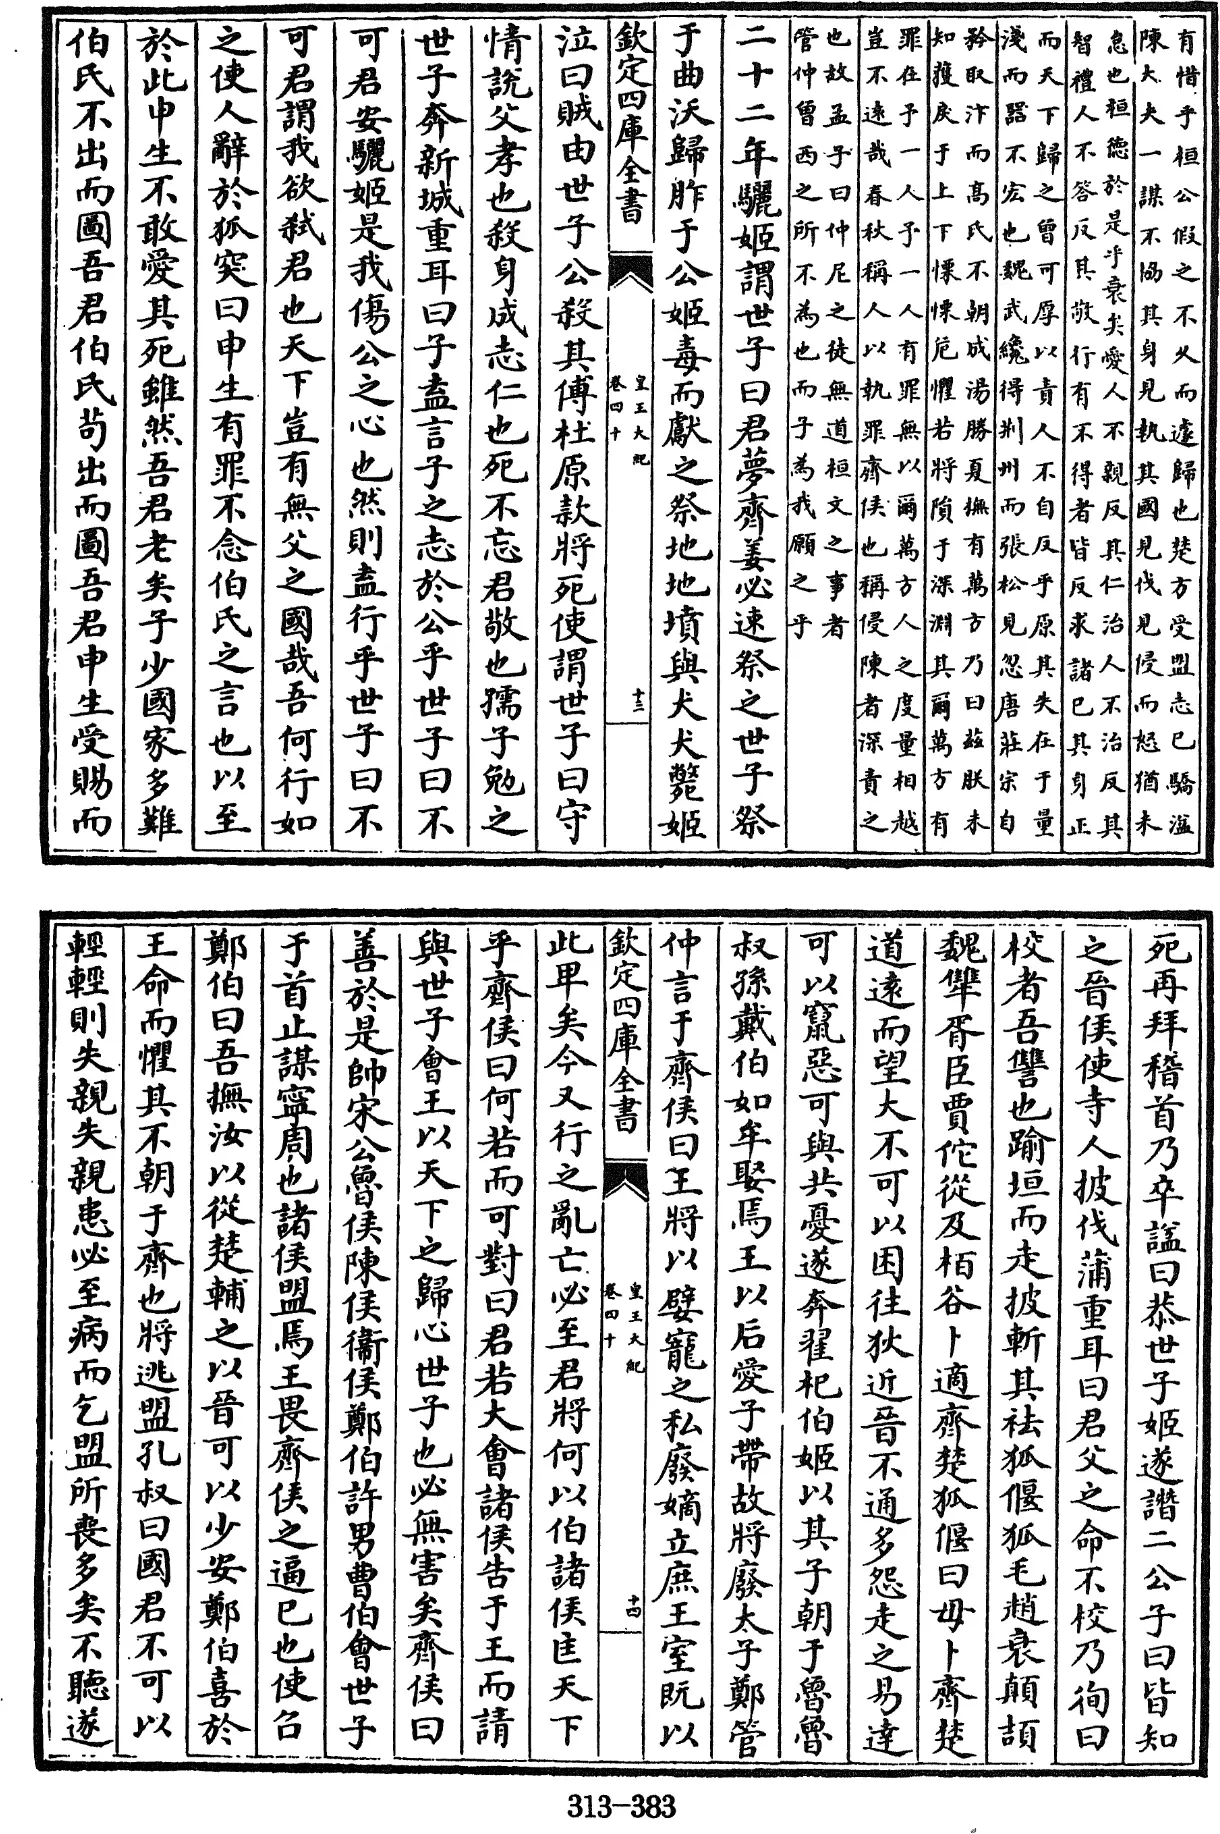 有惜乎桓公假之不久而遽歸也楚方受盟志已驕溢
陳大夫一謀不協其身見執其國見伐見侵而怒猶未
怠也桓德於是乎衰矣愛人不親反其仁治人不治反其
智禮人不答反其敬行有不得者皆反求諸已其身正
而天下歸之曾可厚以責人不自反乎原其失在于量
淺而器不宏也魏武纔得荆州而張松見忽唐莊宗自
矜取汴而高氏不朝成湯勝夏撫有萬方乃曰兹朕未
知獲戾于上下慄慄危懼若將隕于深淵其爾萬方有
罪在予一人予一人有罪無以爾萬方人之度量相越
豈不遠哉春秋稱人以執罪齊侯也稱侵陳者深責之
也故孟子曰仲尼之徒無道桓文之事者
管仲曾西之所不為也而子為我願之乎
二十二年驪姬謂世子曰君夢齊姜必速祭之世子祭
于曲沃歸胙于公姬毒而獻之祭地地墳與犬犬斃姬
欽定四庫全書
皇王大紀
卷四十
十三
泣曰賊由世子公殺其傅杜原款將死使謂世子曰守
情說父孝也殺身成志仁也死不忘君敬也孺子勉之
世子奔新城重耳曰子盍言子之志於公乎世子曰不
可君安驪姬是我傷公之心也然則盍行乎世子曰不
可君謂我欲弒君也天下豈有無父之國哉吾何行如
之使人辭於狐突曰申生有罪不念伯氏之言也以至
於此申生不敢愛其死雖然吾君老矣子少國家多難
伯氏不出而圖吾君伯氏茍出而圖吾君申生受賜而
死再拜稽首乃卒諡曰恭世子姬遂譖二公子曰皆知
之晉侯使寺人披伐蒲重耳曰君父之命不校乃徇曰
校者吾讐也踰垣而走披斬其袪狐偃狐毛趙衰顛頡
魏犨胥臣賈佗從及栢谷卜適齊楚狐偃曰毋卜齊楚
道遠而望大不可以困往狄近晉不通多怨走之易達
可以竄惡可與共憂遂奔翟杞伯姬以其子朝于魯魯
叔孫戴伯如牟娶焉王以后愛子帶故將廢太子鄭管
仲言于齊侯曰王將以嬖寵之私廢嫡立庶王室既以
欽定四庫全書
皇王大紀
卷四十
十四
此卑矣今又行之亂亡必至君將何以伯諸侯匡天下
乎齊侯曰何若而可對曰君若大會諸侯告于王而請
與世子會王以天下之歸心世子也必無害矣齊侯曰
善於是帥宋公魯侯陳侯衞侯鄭伯許男曹伯會世子
于首止謀寧周也諸侯盟焉王畏齊侯之逼已也使召
鄭伯曰吾撫汝以從楚輔之以晉可以少安鄭伯喜於
王命而懼其不朝于齊也將逃盟孔叔曰國君不可以
輕輕則失親失親患必至病而乞盟所喪多矣不聽遂
313-383